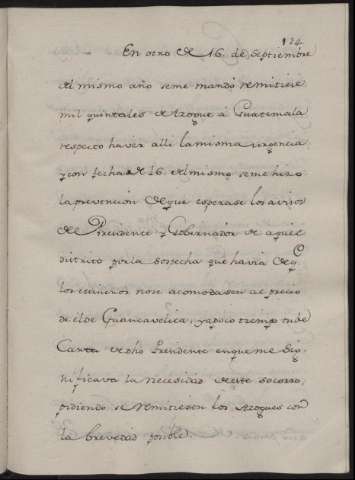 124
En otro de 16 de Septiembre
del mismo año seme mandó remitiese
mil quintales de Azogue á Guatemala
respecto haver alli la misma urgencia;
y con fecha de 26 del mismo seme hizo
la prevencion de que esperase los avisos
del Presidente y Governador de aquel
distrito por la sospecha que havia de q.e
los mineros nose acomodasen al precio
de el de Guancavelica; y á poco tiempo tube
Carta de dho Presidente enque me Sig-
nificava la necesidad de este socorro,
pidiendo se remitiesen los Azogues con
la brevedad posible.